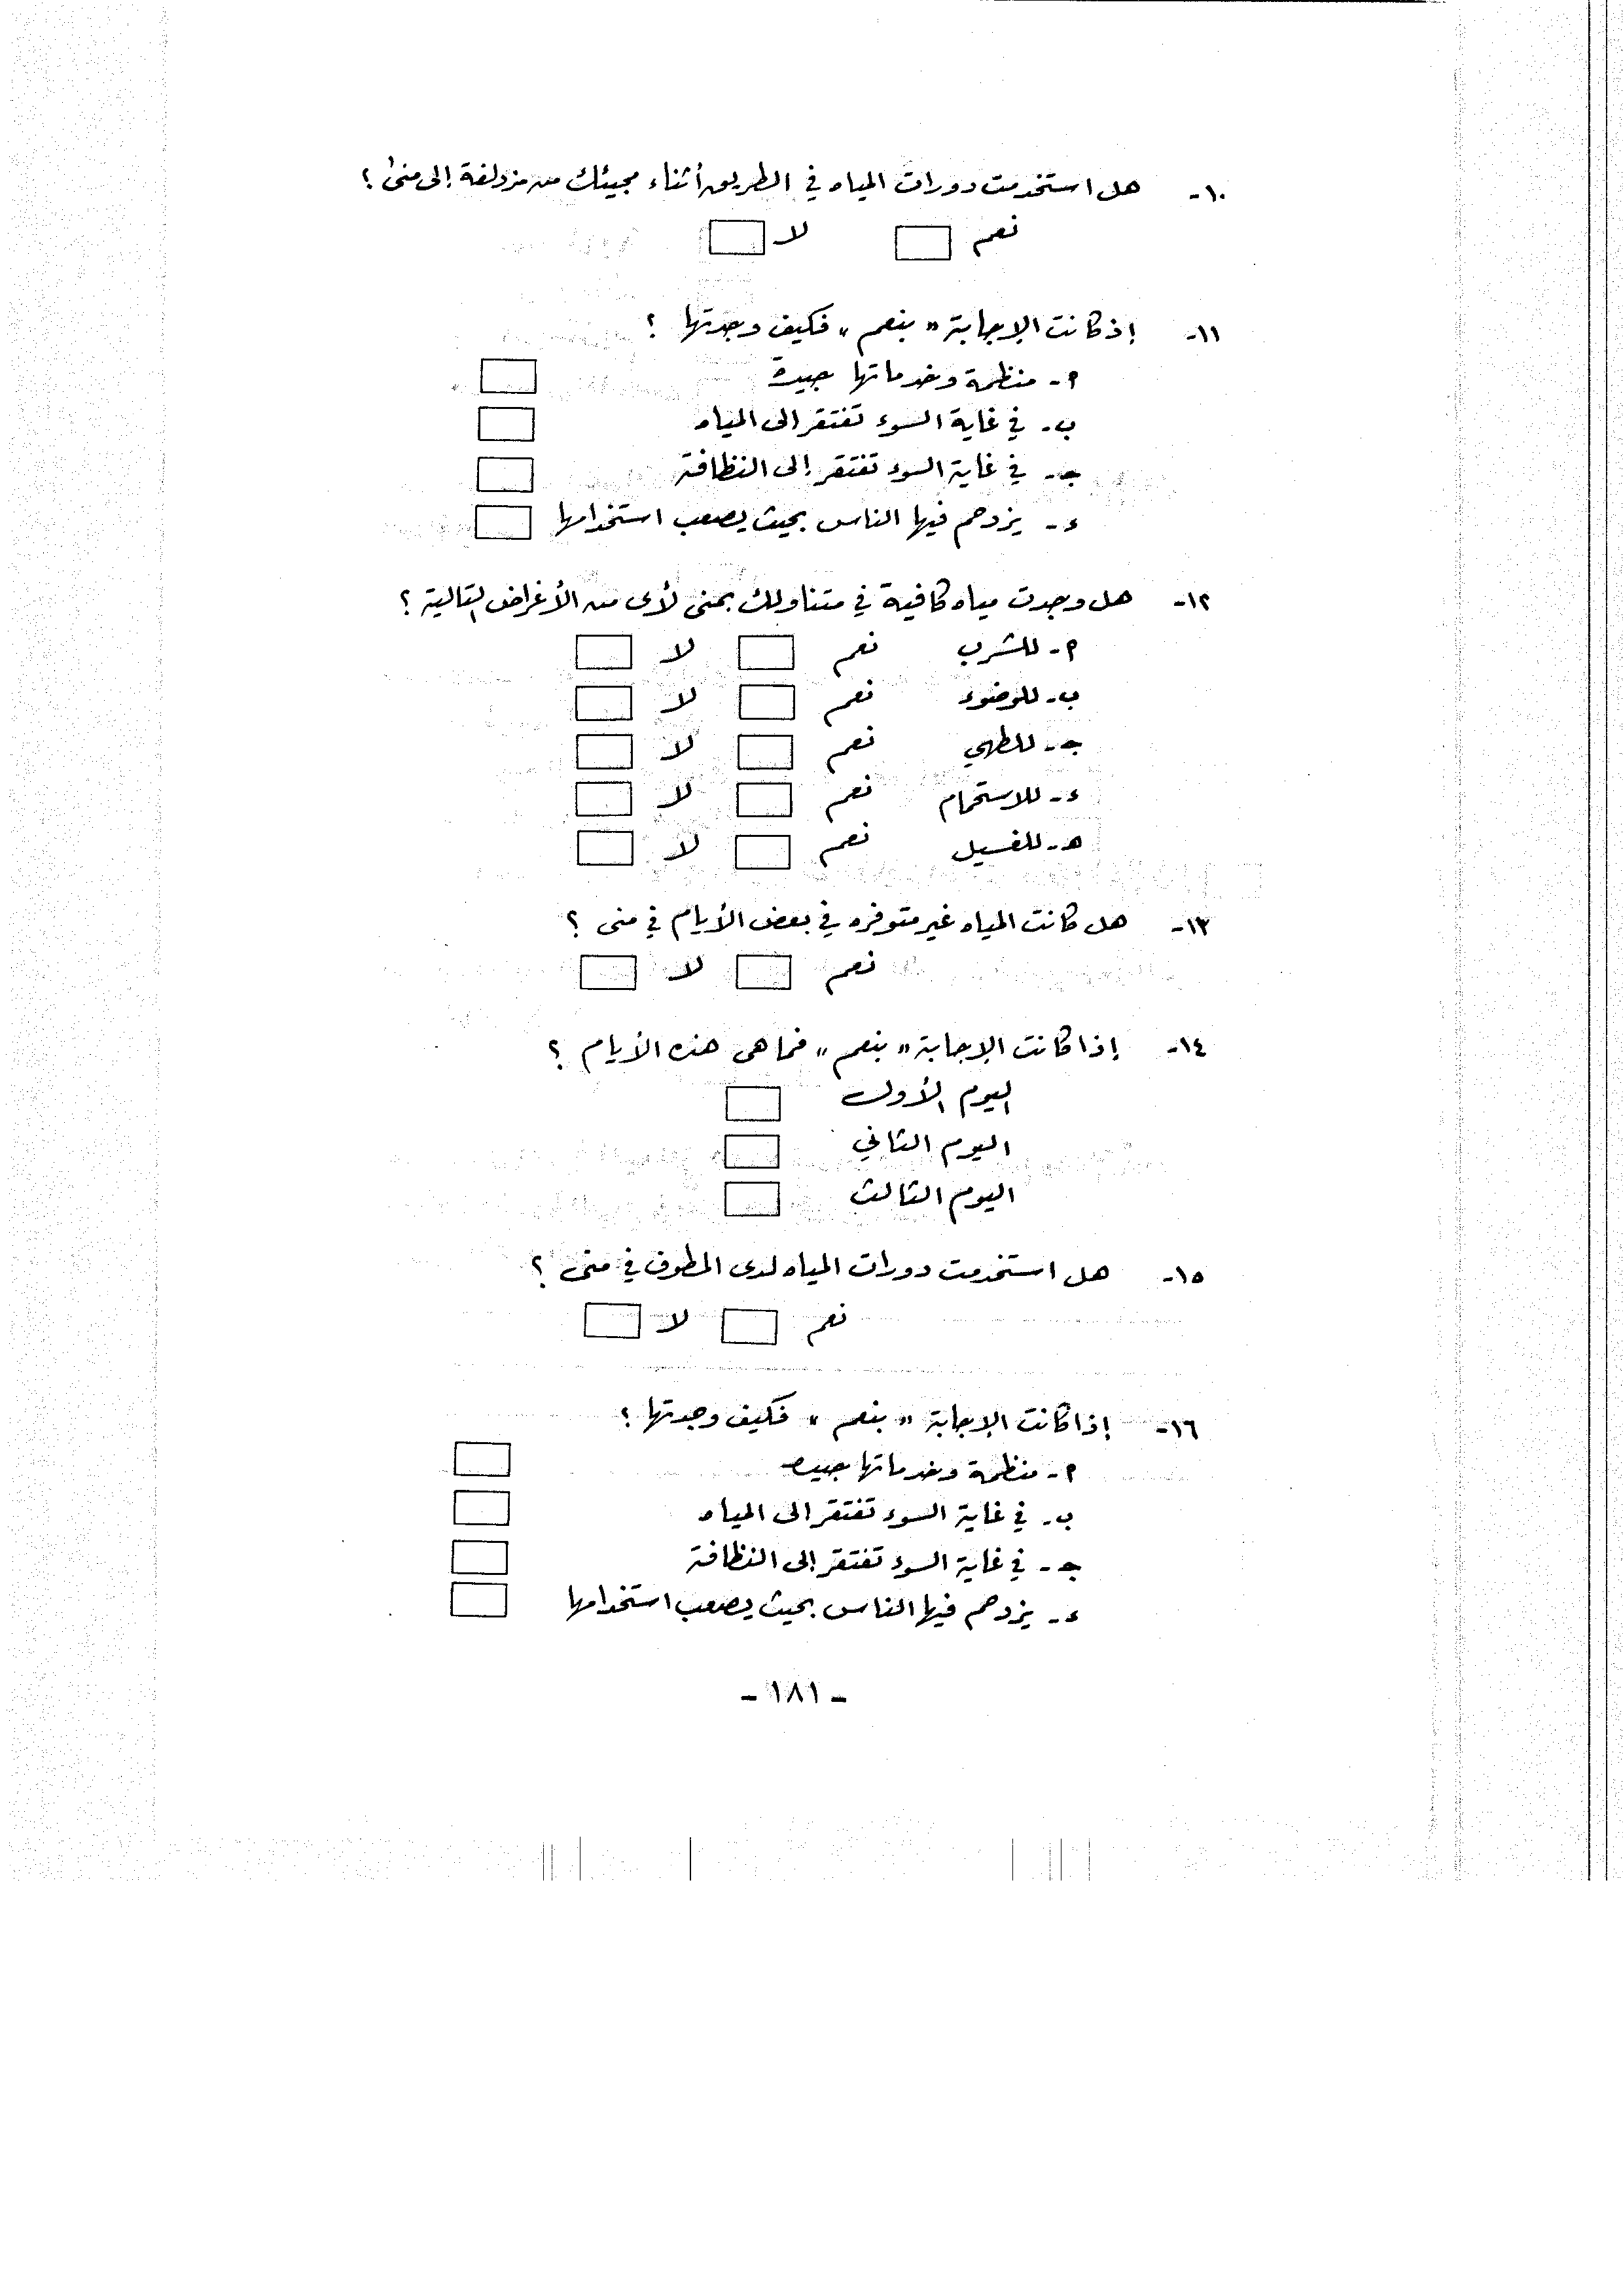 ١٠- هل استخدمت دورات المياه في الطريق أثناء مجيئك من مزدلفة إلى منى ؟
نعم لا
١١- إذ كانت الإجابة " بنعم " فكيف وجدتها ؟
أ - منظمة وخدماتها جيدة
ب - في غاية السوء تفتقر الى المياه
جـ - في غاية السوء تفتقر إلى النظافة
د - يزدحم فيها الناس بحيث يصعب استخدامها
١٢- هل وجدت مياه كافية في متناولك بمنى لأى من الأغراض التالية ؟
أ - للشرب نعم لا
ب - للوضوء نعم لا
جـ - للطهي نعم لا
د - للاستحمام نعم لا
هـ - للغسيل نعم لا
١٣- هل كانت المياه غير متوفره في بعض الأيام في منى ؟
نعم لا
١٤- إذا كانت الإجابة " بنعم " فما هى هذه الأيام ؟
اليوم الأول
اليوم الثاني
اليوم الثالث
١٥- هل استخدمت دورات المياه لدى المطوف في منى ؟
نعم لا
١٦- إذا كانت الإجابة " بنعم " فكيف وجدتها ؟
أ - منظمة وخدماتها جيده
ب - في غاية السوء تفتقر الى المياه
جـ - في غاية السوء تفتقر إلى النظافة
د - يزدحم فيها الناس بحيث يصعب استخدامها
- ١٨١ -